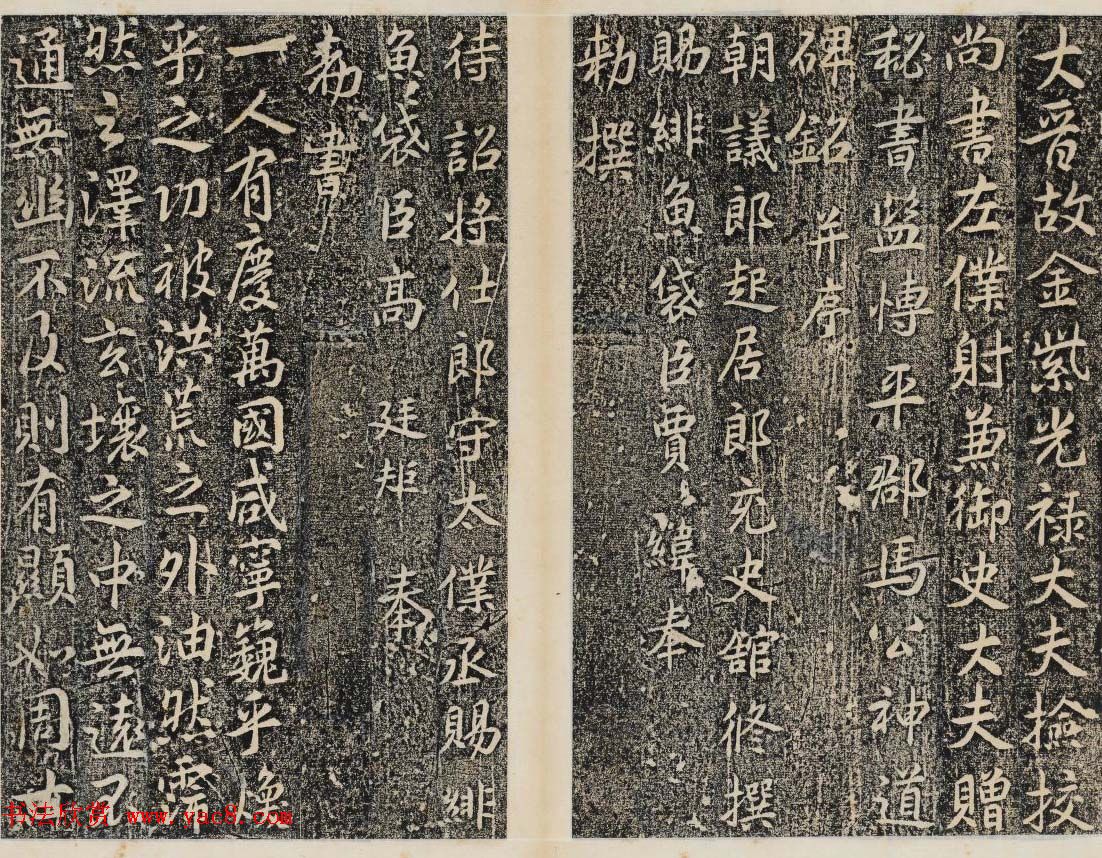 大晉故金紫光祿大夫撿挍
尚書左僕射兼御史大夫贈
秘書監博平郡馬公神道
碑銘并序
朝議郎起居郎充史館修撰
賜緋魚袋臣賈緯奉
勑撰
待詔將仕郎守太僕丞賜緋
魚袋臣高廷矩奉
勑書
一人有慶萬國咸寧巍乎煥
乎之功被洪荒之外油然霈
然之澤流玄壤之中無遠不
通無幽不及則有顯如周
书法欣赏 www.yac8.com